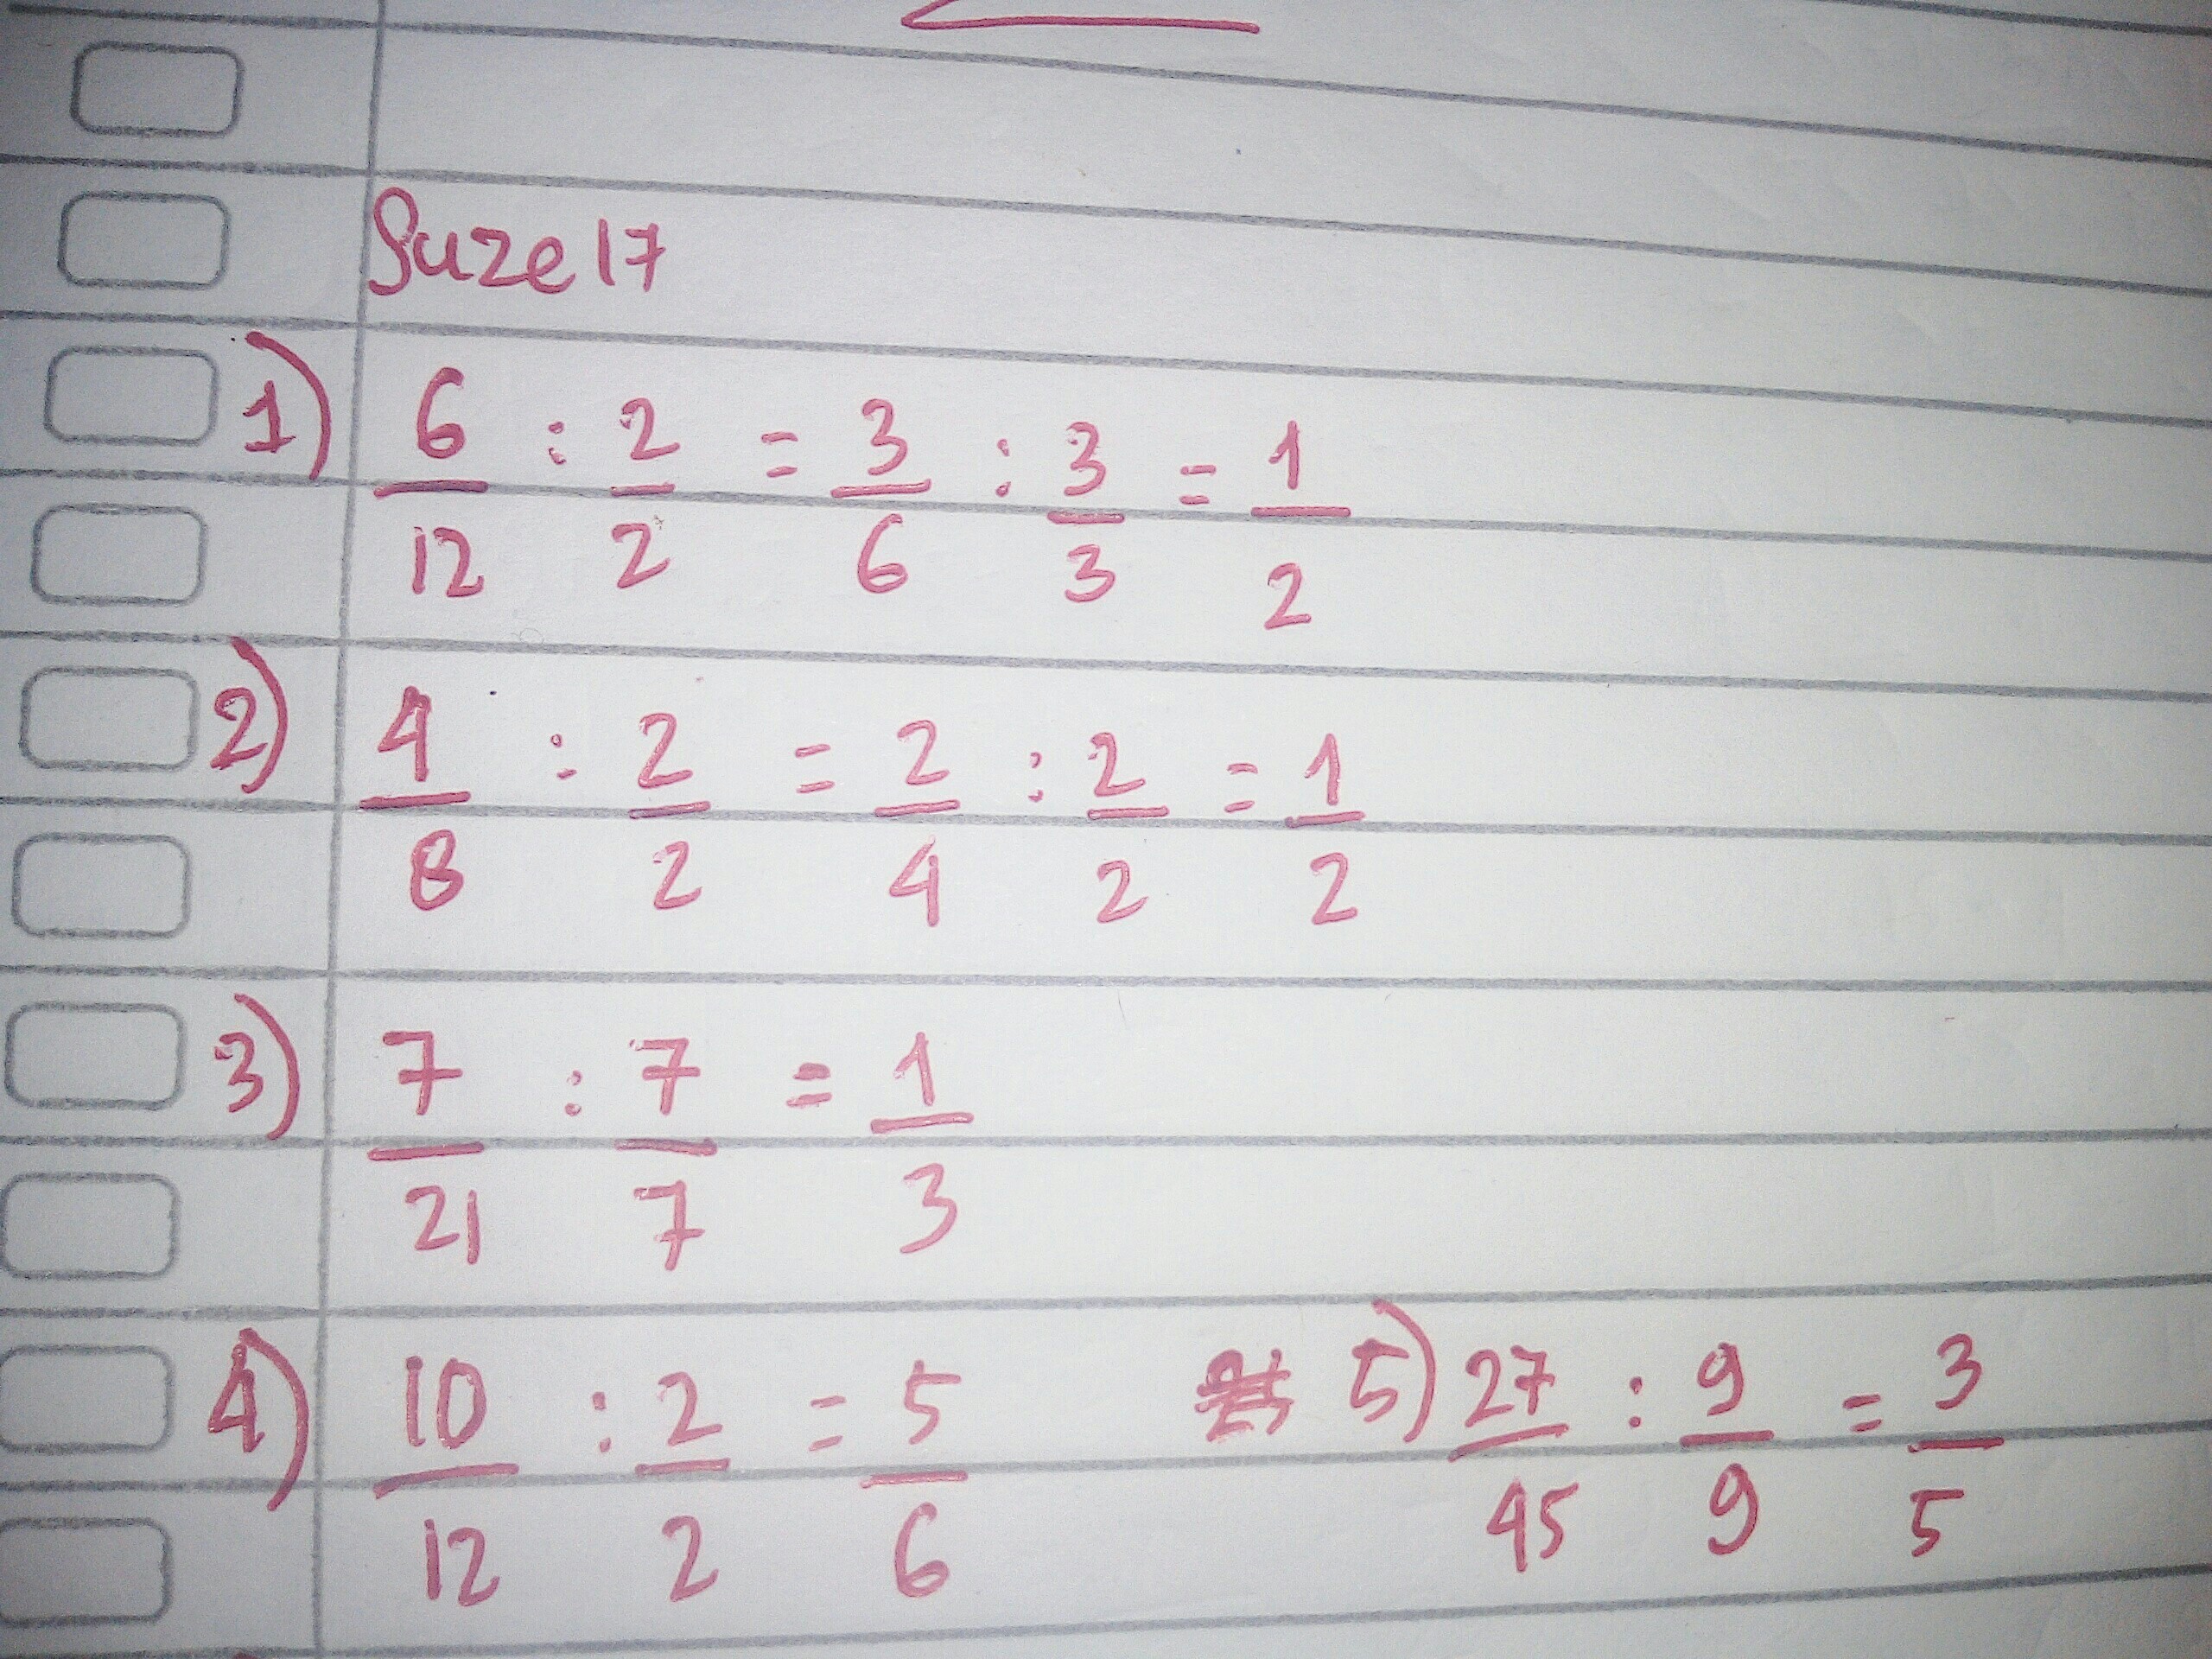 Suze17
1) 6/12 : 2/2 = 3/6 : 3/3 = 1/2
2) 4/8 : 2/2 = 2/4 : 2/2 = 1/2
3) 7/21 : 7/7 = 1/3
4) 10/12 : 2/2 = 5/6
5) 27/45 : 9/9 = 3/5